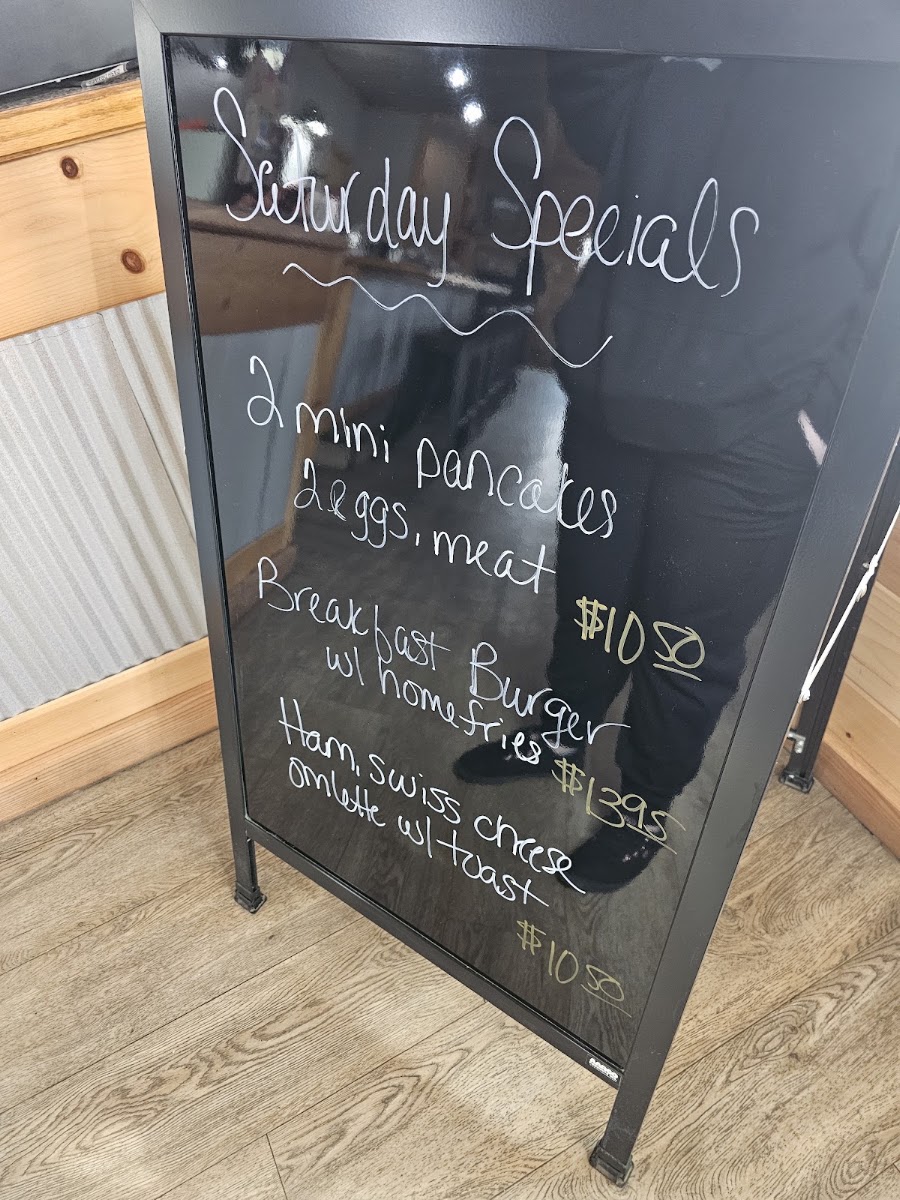 Saturday Specials
2 mini pancakes
2 eggs, meat
$10 50
Breakfast Burger
w/ homefries
$13 95
Ham, swiss cheese
omlette w/ toast
$10 50